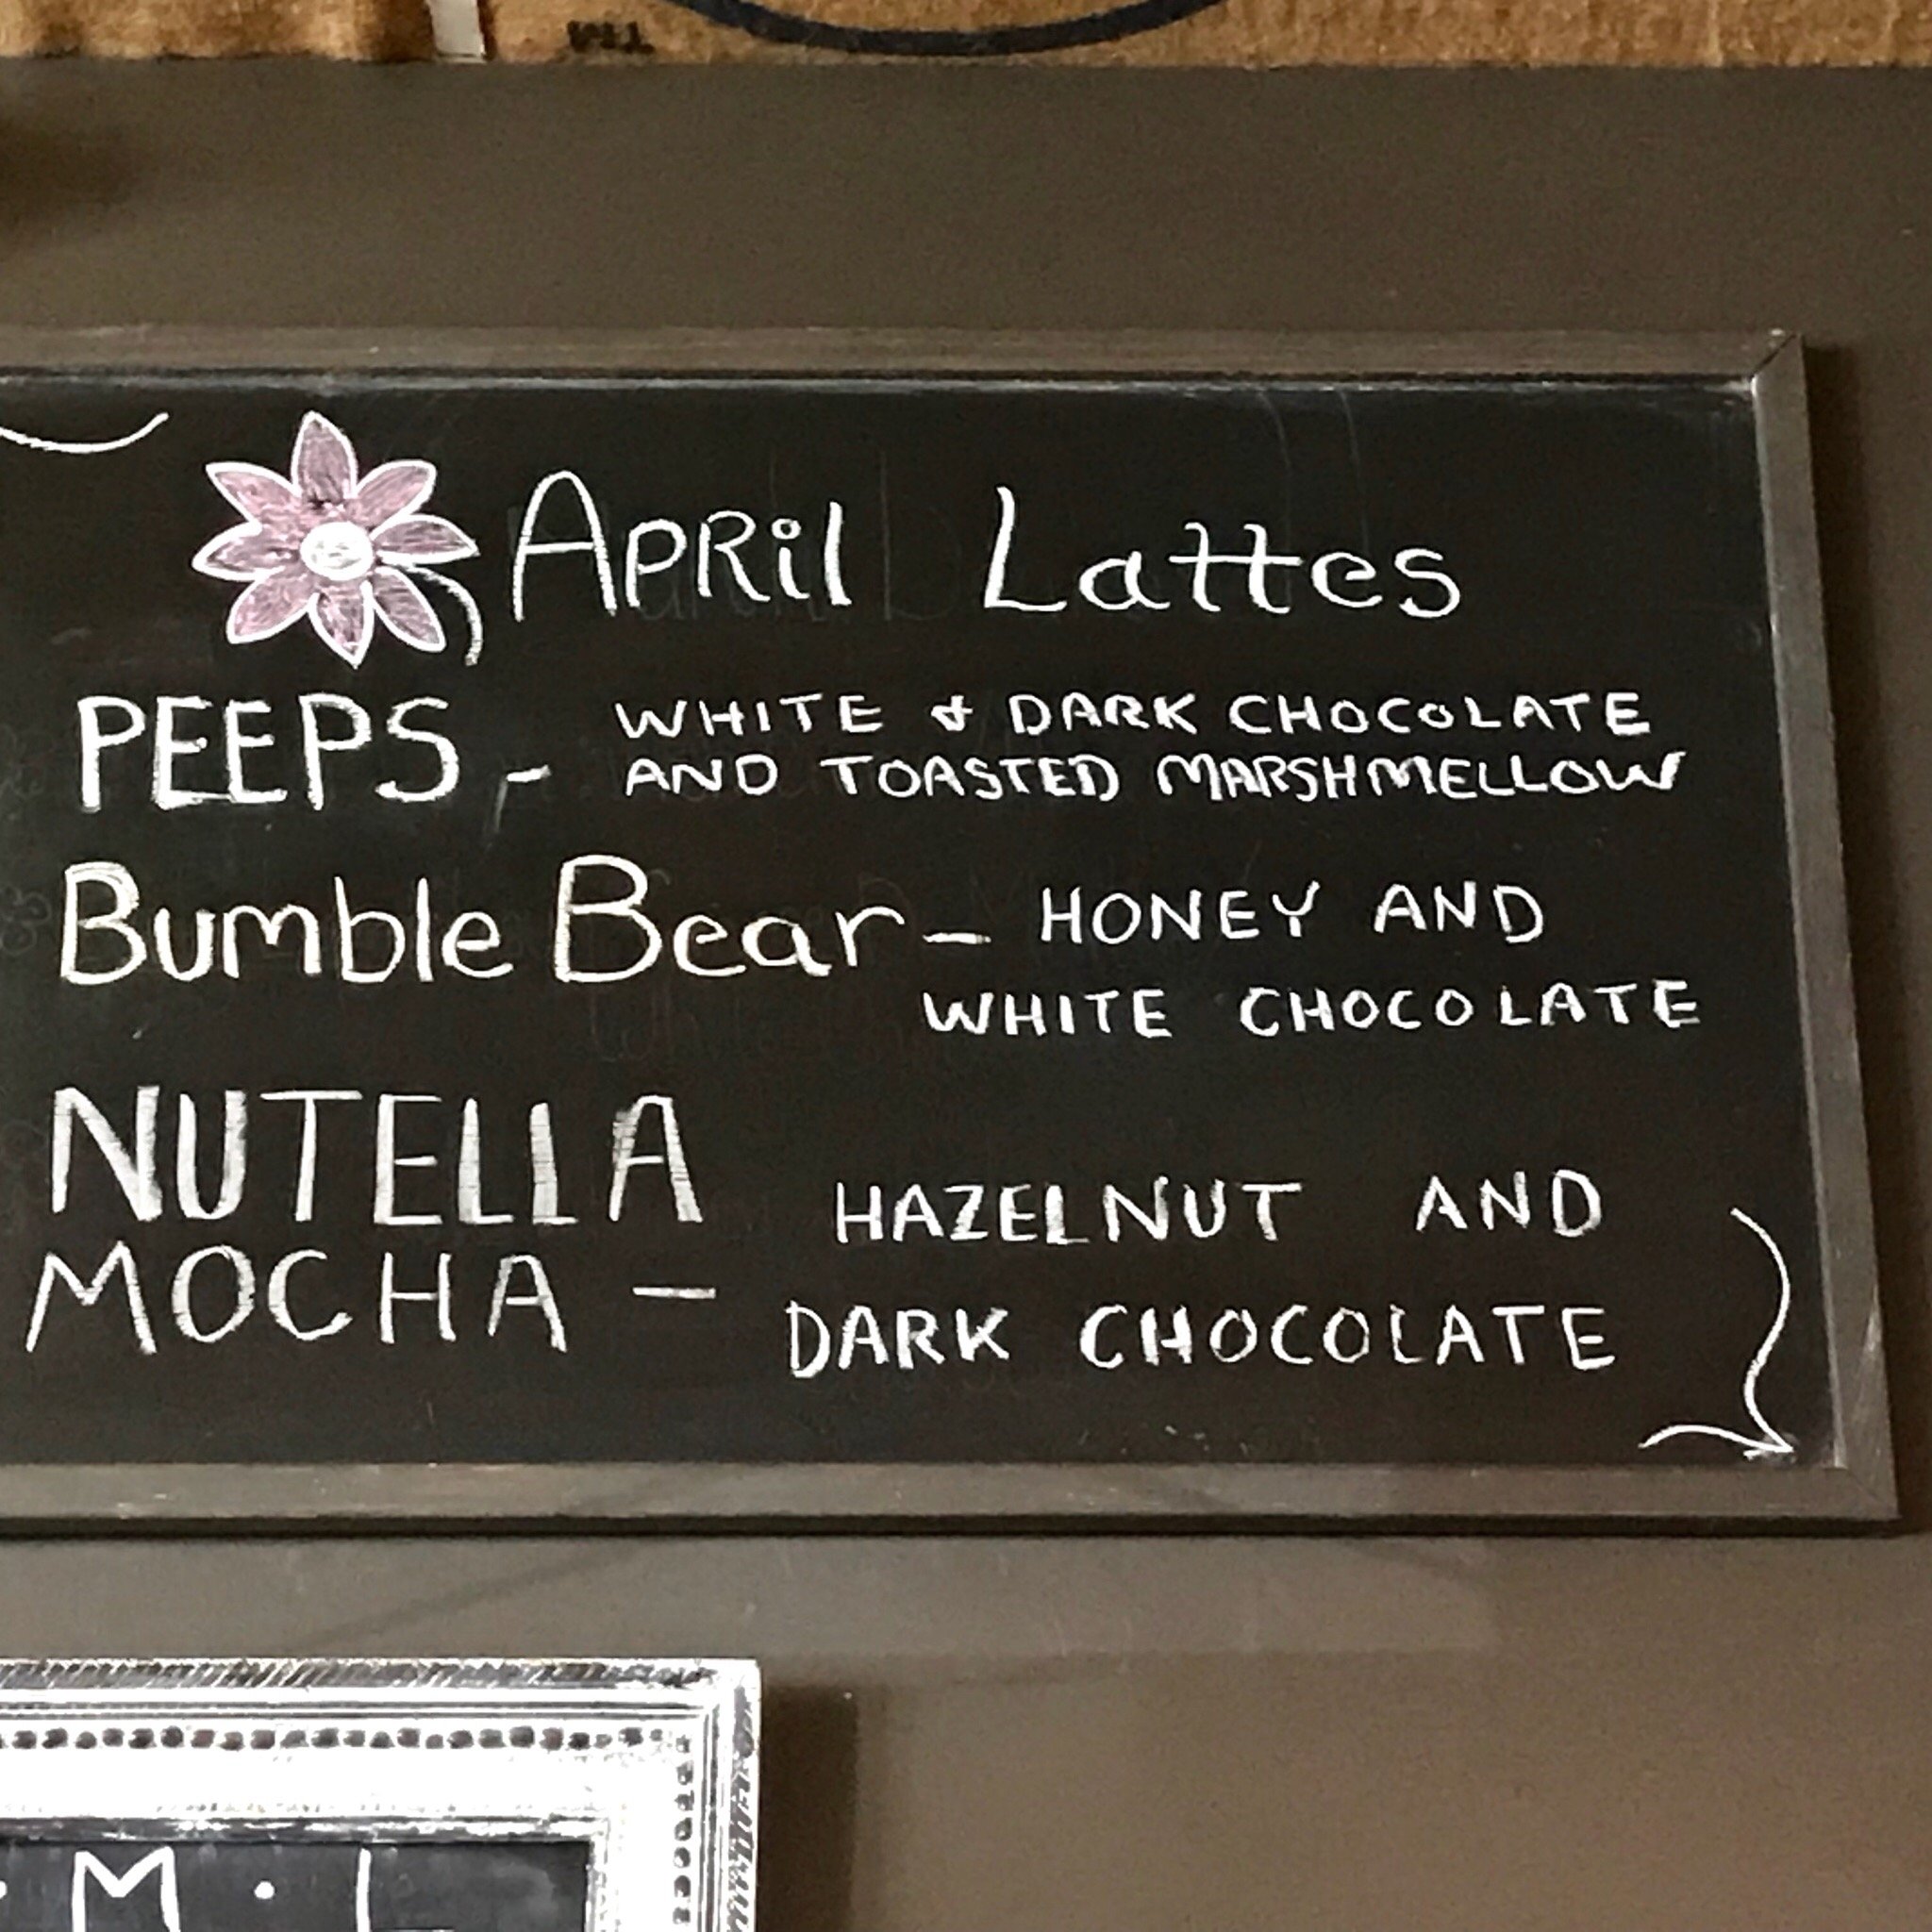 TM
APRil Lattes
PEEPS - WHITE & DARK CHOCOLATE
AND TOASTED MARSHMELLOW
Bumble Bear - HONEY AND
WHITE CHOCOLATE
NUTELLA
MOCHA - HAZELNUT AND
DARK CHOCOLATE
M · L